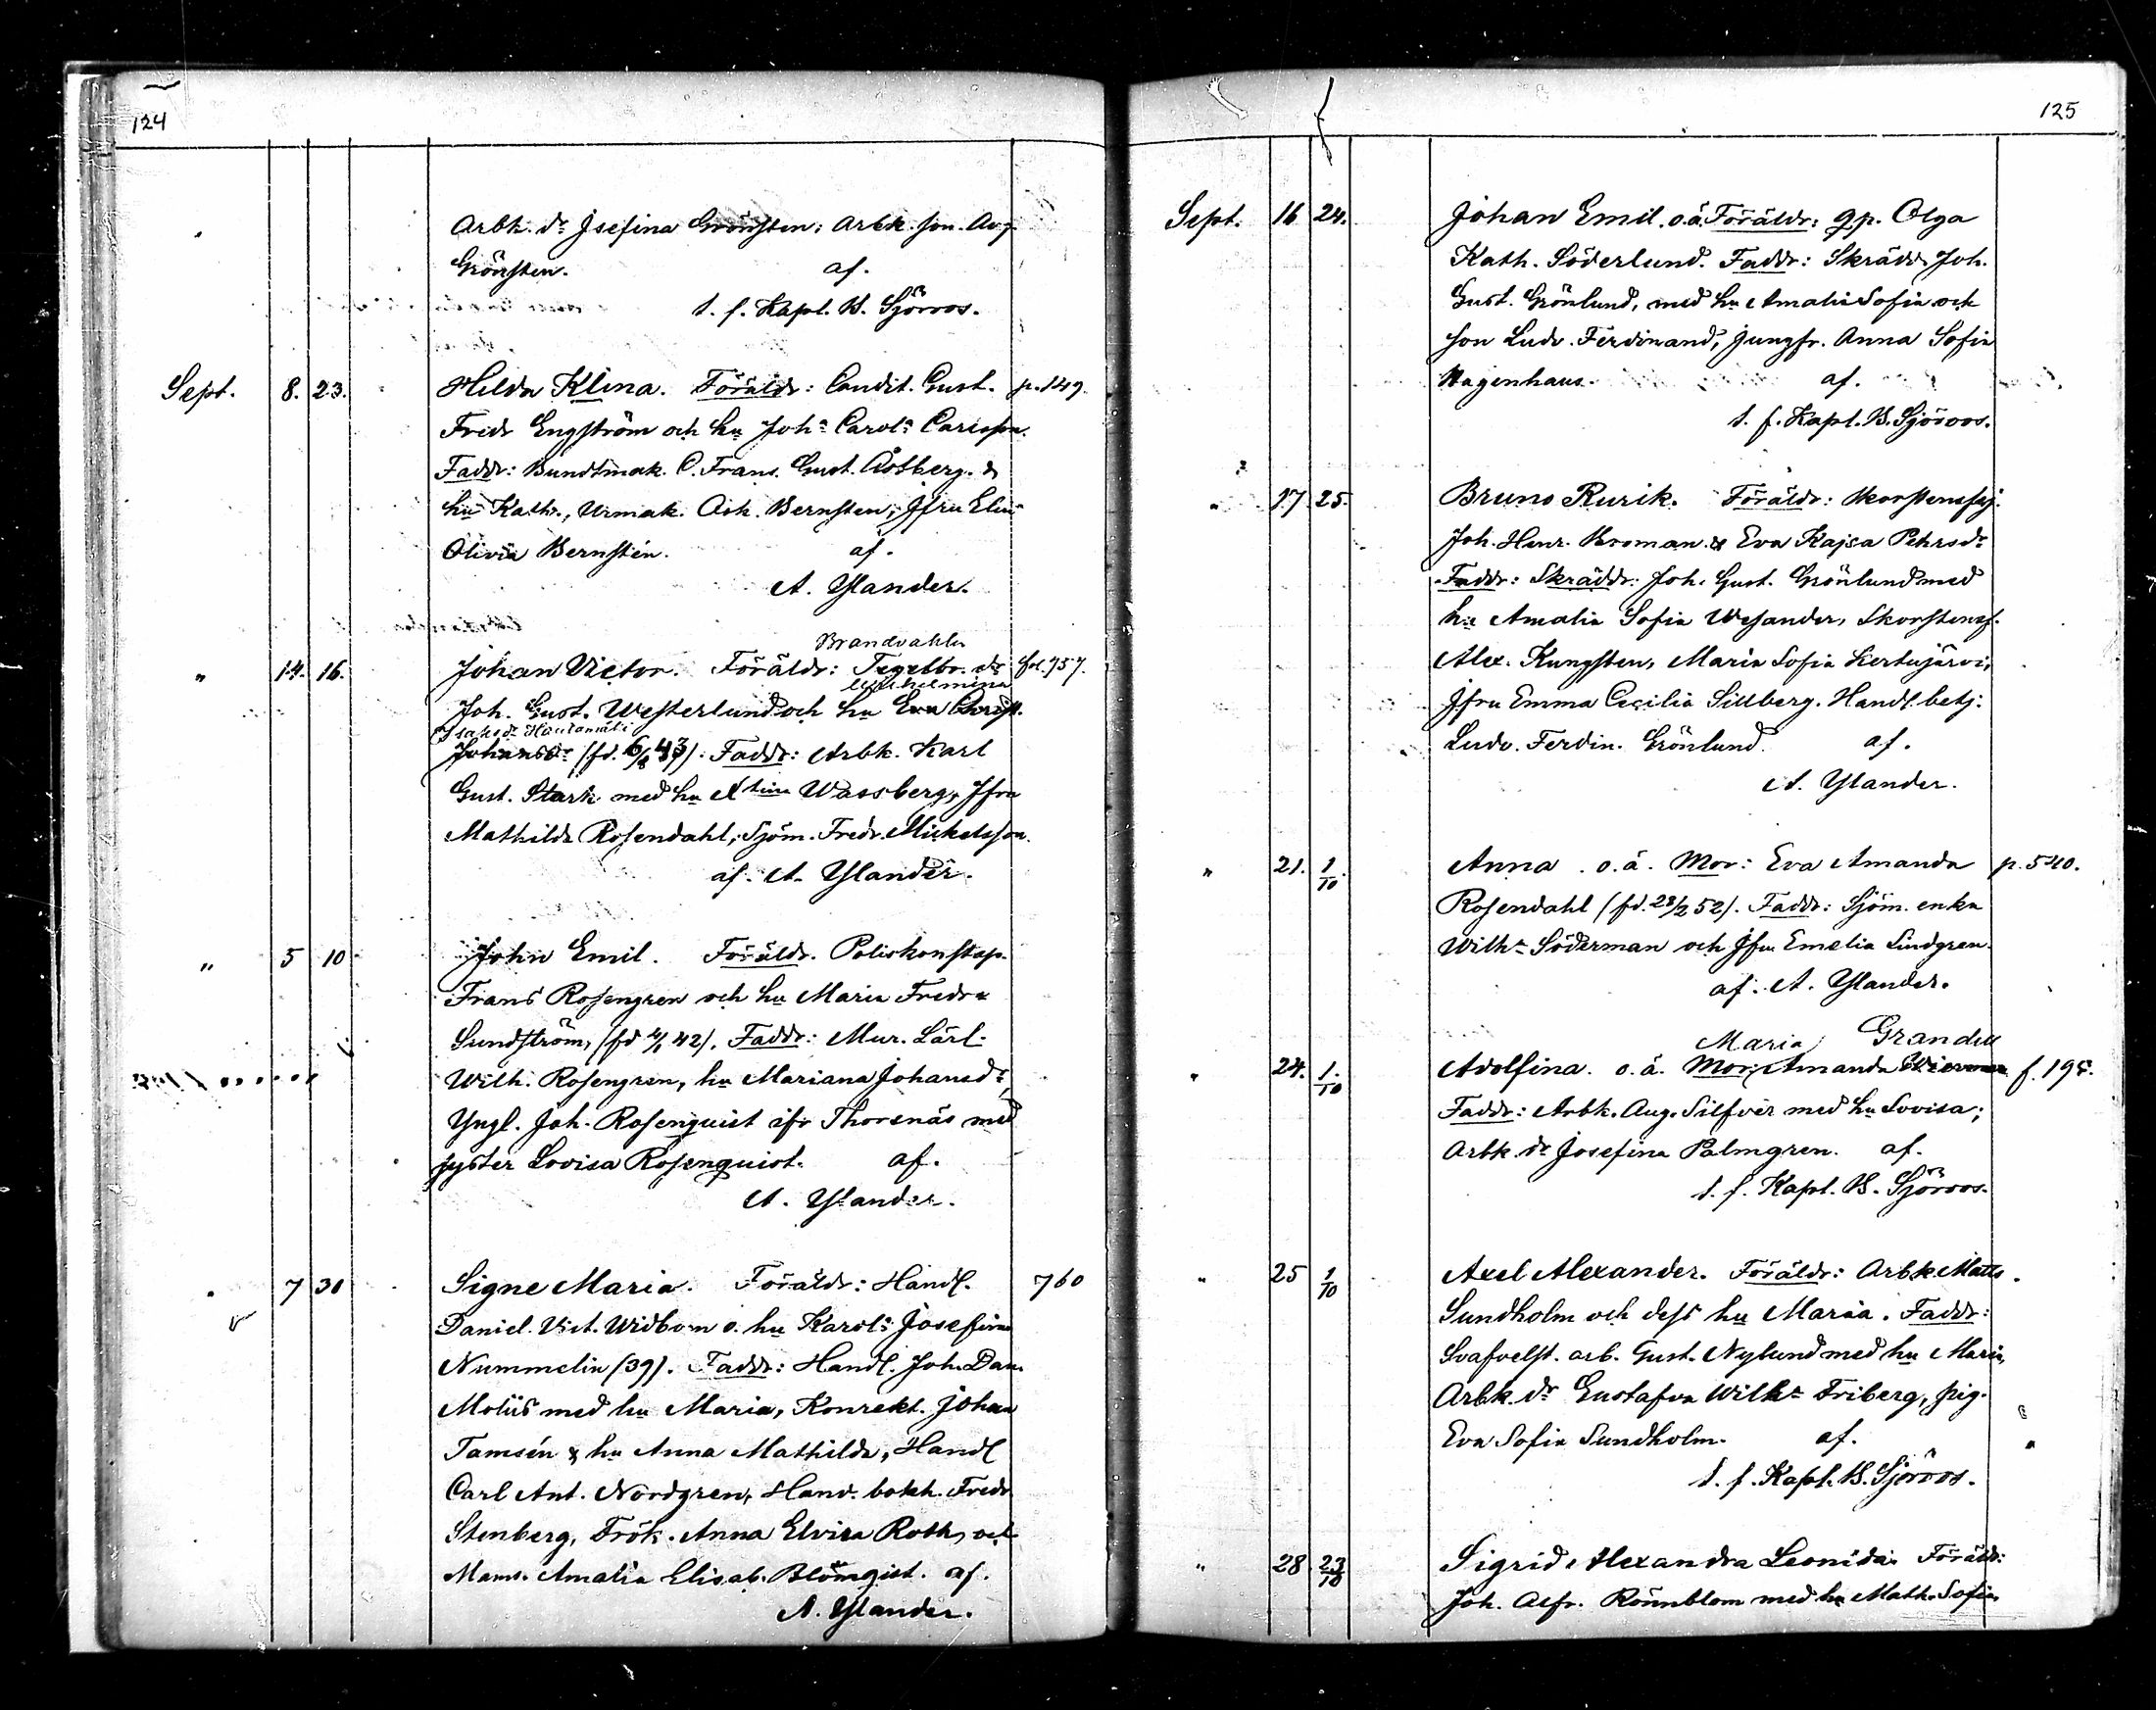 124
Arbk. dr Josefina Grönsten; Arbk. son. Aug.
Grönsten. af.
t. f. Kapl. B. Sjöroos.
Sept. 8. 23. Hilda Elina. Föräldr: Condit. Gust. p. 149.
Fredr Engström och hu Joha Carola Carlsson.
Faddr: Bundtmak. C. Frans. Gust. Åstberg. &
hu Kath., Urmak. Ark. Bernsten, Jfru Elin
Olivia Bernstén. af.
A. Ylander.
Brandvakten
" 14. 16. Johan Victor. Föräldr: Tegelbr. fol. 757.
Wilhelmina
Joh. Gust. Westerlund och hu Eva Christ.
Isaksdr Hautamäki
Johansdr (fd. 6/8 43). Faddr: Arbk. Karl
Gust. Stark med hu Stina Wassberg, Jfru
Mathilda Rosendahl, Sjöm. Fredr. Mickelsson.
af. A. Ylander.
" 5 10 John Emil. Föräldr. Poliskonstap.
Frans Rosengren och hu Maria Fredra
Sundström, (fd 4/1 42). Faddr: Mur. Lärl.
Wilh. Rosengren, hu Mariana Johansdr,
Yngl. Joh. Rosenquist ifr Thorsnäs med
syster Lovisa Rosenquist. af.
A. Ylander.
" 7 30 Signe Maria. Föräldr: Handl. 760
Daniel. Vict. Widbom o. hu Karola Josefina
Nummelin (39). Faddr: Handl. Joh. Dan.
Moliis med hu Maria, Konrekt. Johan
Tamsén & hu Anna Mathilda, Handl
Carl Ant. Nordgren, Hand. bokh. Fredr
Stenberg, Frök. Anna Elvira Roth, och
Mams. Amalia Elisab. Blomqist. af.
A. Ylander.
125
Sept. 16 24. Johan Emil. o.ä. Föräldr: gp. Olga
Kath. Söderlund. Faddr: Skrädd. Joh.
Gust. Grönlund, med hu Amalia Sofia och
son Ludv. Ferdinand, Jungfr. Anna Sofia
Hagenhaus. af.
t. f. Kapl. B. Sjöroos.
" 17 25. Bruno Rurik. Föräldr: Skorstensfej.
Joh. Henr. Broman & Eva Kajsa Pehrsdr
Faddr: Skräddr: Joh. Gust. Grönlund med
hu Amalia Sofia Wesander, Skorstensf.
Alex. Kungsten, Maria Sofia Kertujärvi,
Jfru Emma Cecilia Sillberg. Handl. betj.
Ludv. Ferdin. Grönlund. af.
A. Ylander.
" 21. 1/10. Anna. o.ä. Mor: Eva Amanda p. 540.
Rosendahl (fd. 28/2 52). Faddr: Sjöm. enka
Wilha Söderman och Jfru Emelia Lindgren.
af. A. Ylander.
Maria Grandell
" 24. 1/10 Adolfina. o.ä. Mor: Amanda f. 195.
Faddr: Arbk. Aug. Silfvér med hu Lovisa;
Arbk. dr Josefina Palmgren. af.
t. f. Kapl. B. Sjöroos.
" 25 1/10 Axel Alexander. Föräldr: Arbk Matts
Sundholm och dess hu Maria. Faddr:
Svafvelst. arb. Gust. Nylund med hu Maria,
Arbk. dr Gustafva Wilha Friberg, pig.
Eva Sofia Sundholm. af.
t. f. Kapl. B. Sjöroos.
" 28 23/10 Sigrid Alexandra Leonida. Föräldr:
Joh. Alfr. Rönnblom med hu Math. Sofia